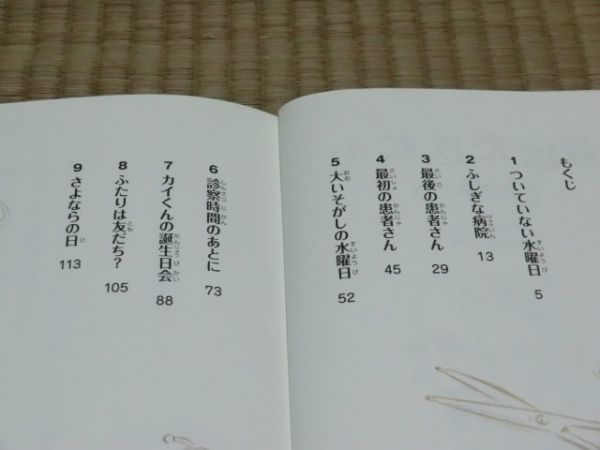 もくじ
1 ついていない水曜日 5
2 ふしぎな病院 13
3 最後の患者さん 29
4 最初の患者さん 45
5 大いそがしの水曜日 52
6 診察時間のあとに 73
7 カイくんの誕生日会 88
8 ふたりは友だち? 105
9 さよならの日 113